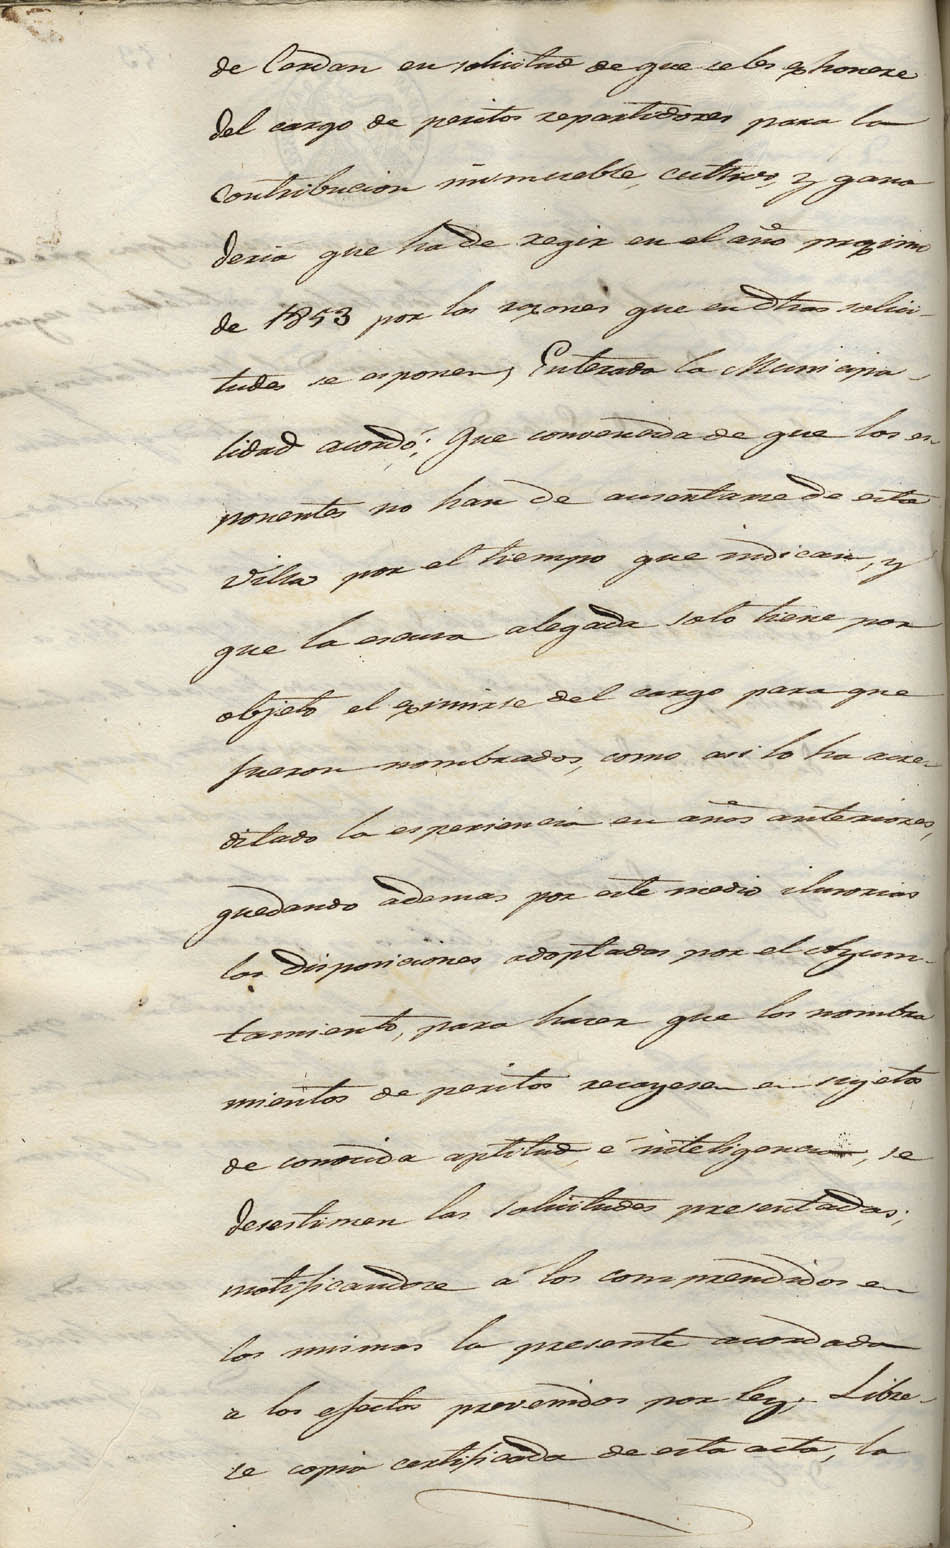 de Cerdan en solicitud de que se les exhonere
del cargo de peritos repartidores para la
contribucion inmueble, cultivo, y gana
deria que ha de regir en el año proximo
de 1853 por las razones que en dhas solici-
tudes se esponen, Enterada la Municipa-
lidad acordó; Que convencida de que los es-
ponentes no han de ausentarse de esta
Villa por el tiempo que indican, y
que la escusa alegada solo tiene por
objeto el eximirse del cargo para que
fueron nombrados, como asi lo ha acre-
ditado la esperiencia en años anteriores,
quedando ademas por este medio ilusorias
las disposiciones adoptadas por el Ayun-
tamiento, para hacer que los nombra
mientos de peritos recayesen en sugetos
de conocida aptitud, é inteligencia, se
desestimen las solicitudes presentadas;
notificandose á los comprendidos en
las mismas la presente acordada
a los efectos prevenidos por ley; Libre-
se copia certificada de esta acta, la